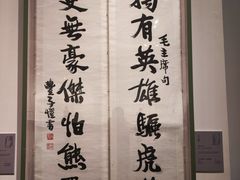 獨有英雄驅虎
毛主席句
更無豪傑怕熊
豐子愷書